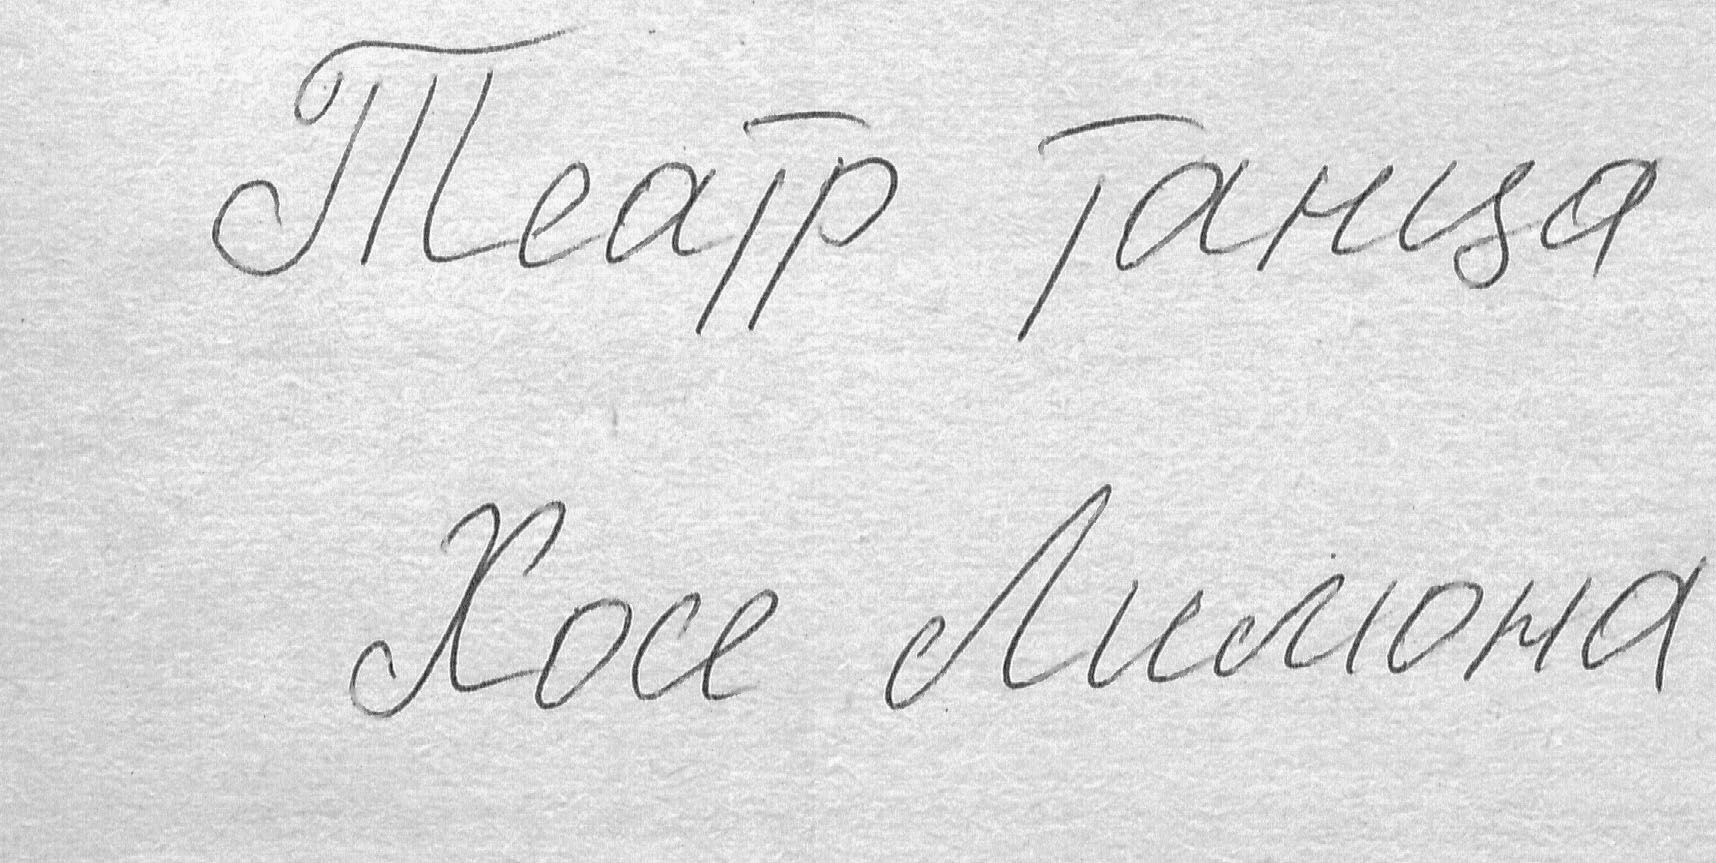 Театр танца
Хосе Лимона